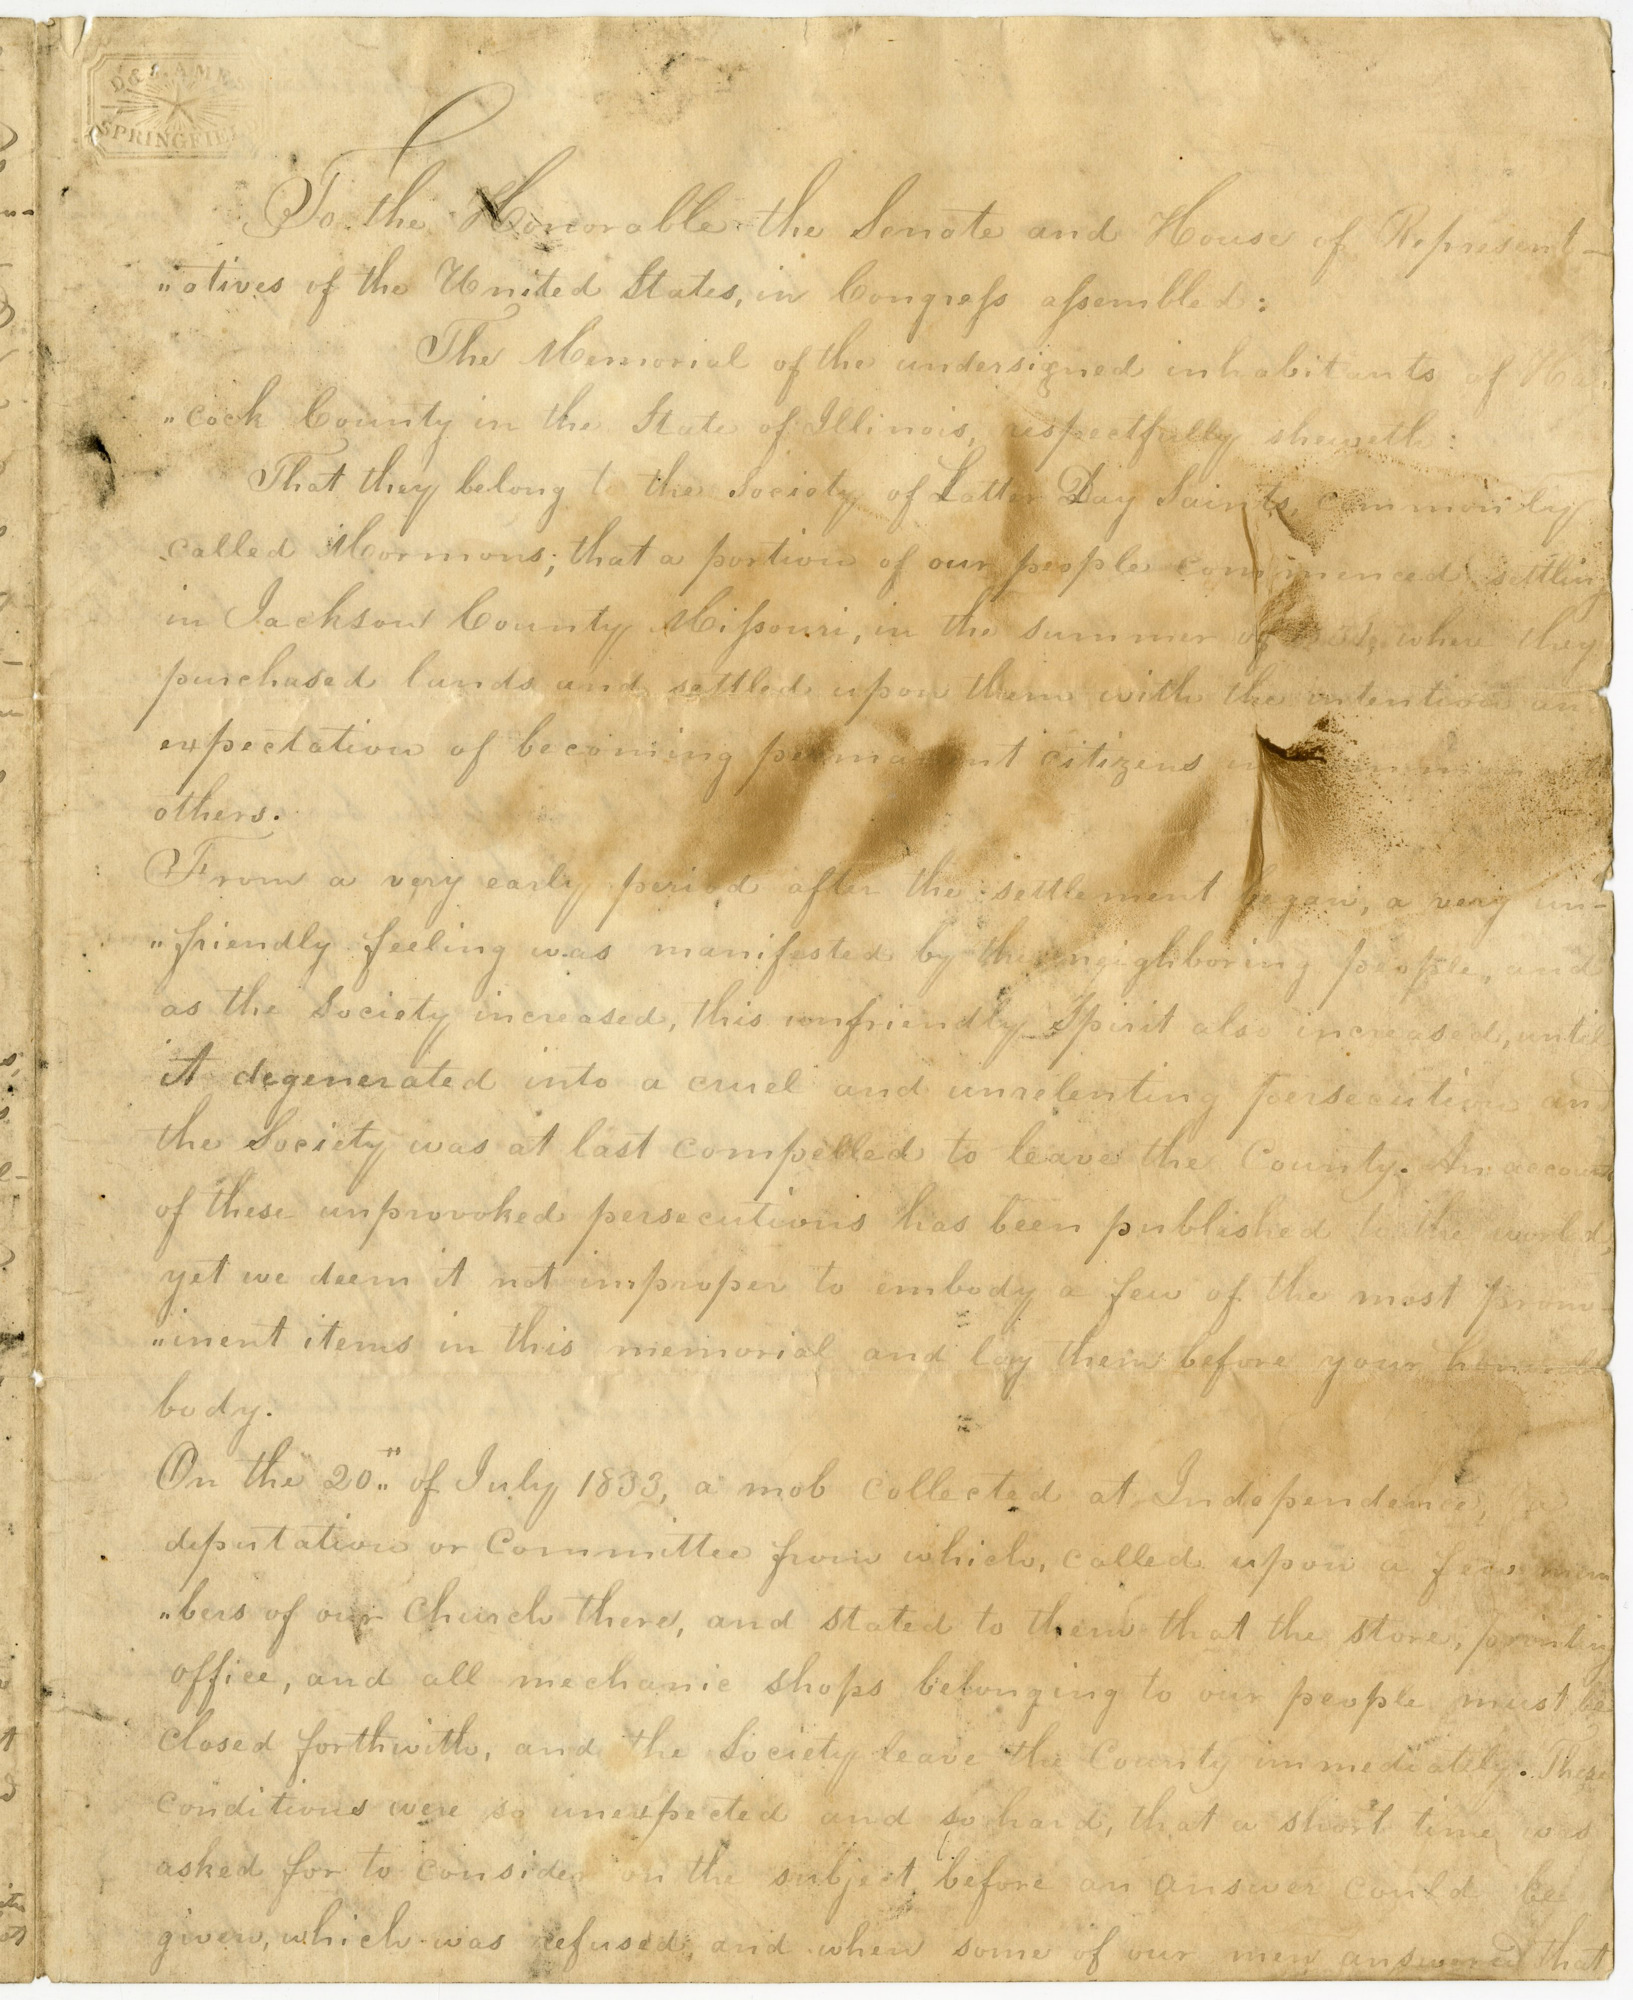 D & J. AMES
SPRINGFIEL
To the Honorable the Senate and House of Represent-
"atives of the United States, in Congress assembled:
The Memorial of the undersigned inhabitants of
"cock County in the State of Illinois, respectfully sheweth:
That they belong to the Society of Latter Day Saints, commonly
called Mormons; that a portion of our people commenced settling
in Jackson County Missouri, in the summer of where they
purchased lands and settled upon them with the intention an
expectation of becoming permanent citizens
others.
From a very early period after the settlement began, a very un-
"friendly feeling was manifested by the neighboring people, and
as the Society increased, this unfriendly Spirit also increased, until
it degenerated into a cruel and unrelenting persecution and
the Society was at last compelled to leave the County. An account
of these unprovoked persecutions has been published to the world,
yet we deem it not improper to embody a few of the most prom-
"inent items in this memorial and lay them before your
body.
On the 20th of July 1833, a mob collected at Independence, a
deputation or Committee from which, called upon a few mem
"bers of our Church there, and stated to them that the store, printing
office, and all mechanic shops belonging to our people must be
closed forthwith, and the Society leave the County immediately. These
conditions were so unexpected and so hard, that a short time was
asked for to consider on the subject before an answer could be
given, which was refused, and when some of our men answered that